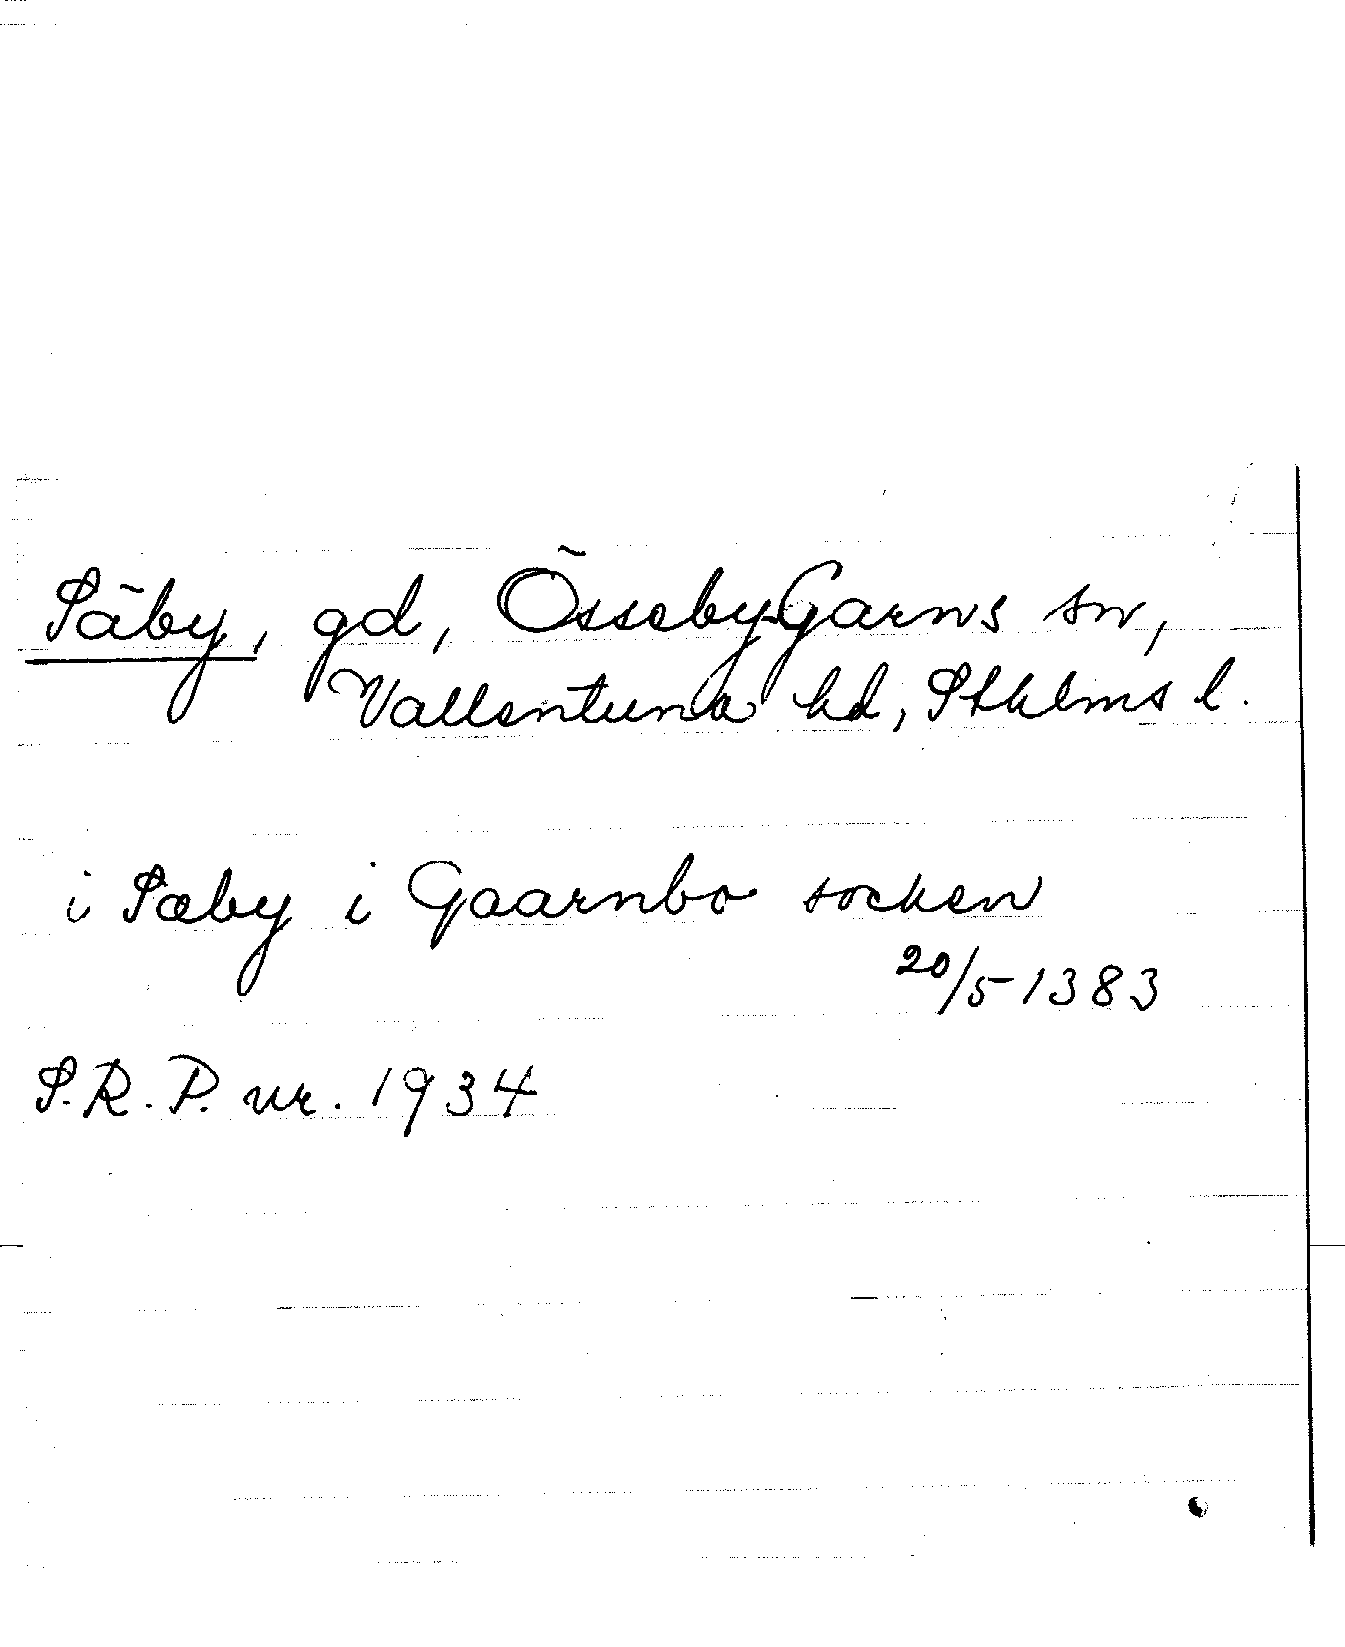 Säby, gd, Össeby-Garns sn,
Vallentuna hd, Sthlms l.
i Sæby i Gaarnbo socken
20/5 1383
S.R.P. nr. 1934